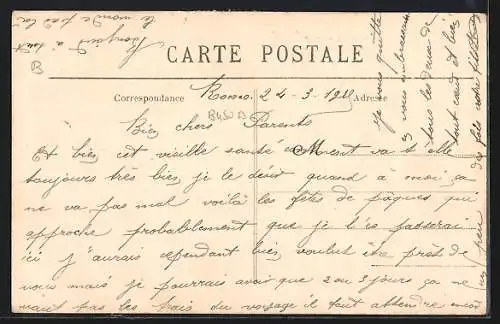 CARTE POSTALE
Correspondance
Adresse
24-3-19
Bien chers Parents
Et bien cet vieille santé comment va t elle
toujours très bien, je le désir quand à moi, ça
ne va pas mal voilà les fêtes de pâques qui
approche probablement que je les passerai
ici j'aurais cependant bien voulut être près de
vous mais je pourrais avoir que 2 ou 3 jours ça ne
vaut pas les frais du voyage il faut attendre encore
un peu
Je vous quitte
vous embrassant
tous les deux de
tout cœur et bien
des fois votre
Bonjour à tout
le monde